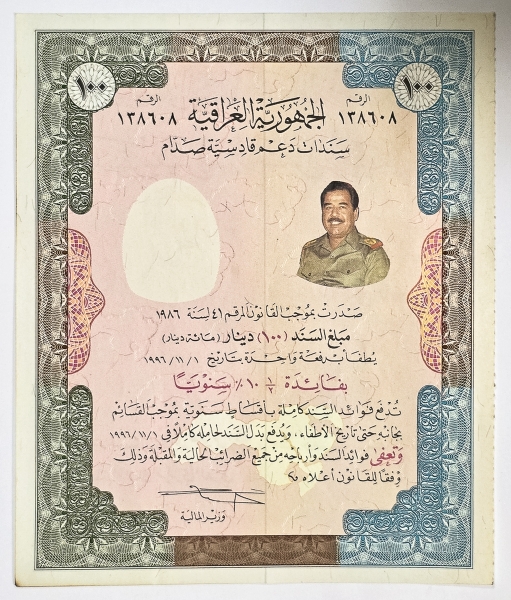 ١٠٠ ١٠٠
الرقم الرقم
١٣٨٦٠٨ الجمهورية العراقية ١٣٨٦٠٨
سندات دعم قادسية صدام
صدرت بموجب القانون المرقم ٤١ لسنة ١٩٨٦
مبلغ السند (١٠٠) دينار (مائة دينار)
يُطفأ دفعة واحدة بتاريخ ١٩٩٦/١١/١
بفائدة ١٠٪ سنويًا
تُدفع فوائد السند كاملة بأقساط سنوية بموجب القسائم
بجانبه حتى تاريخ الأطفاء، ويُدفع بدل السند لحامله كاملًا في ١٩٩٦/١١/١
وتعفى فوائد السند وأرباحه من جميع الضرائب الحالية والمقبلة وذلك
وفقًا للقانون أعلاه
وزير المالية
١٠٠ ١٠٠